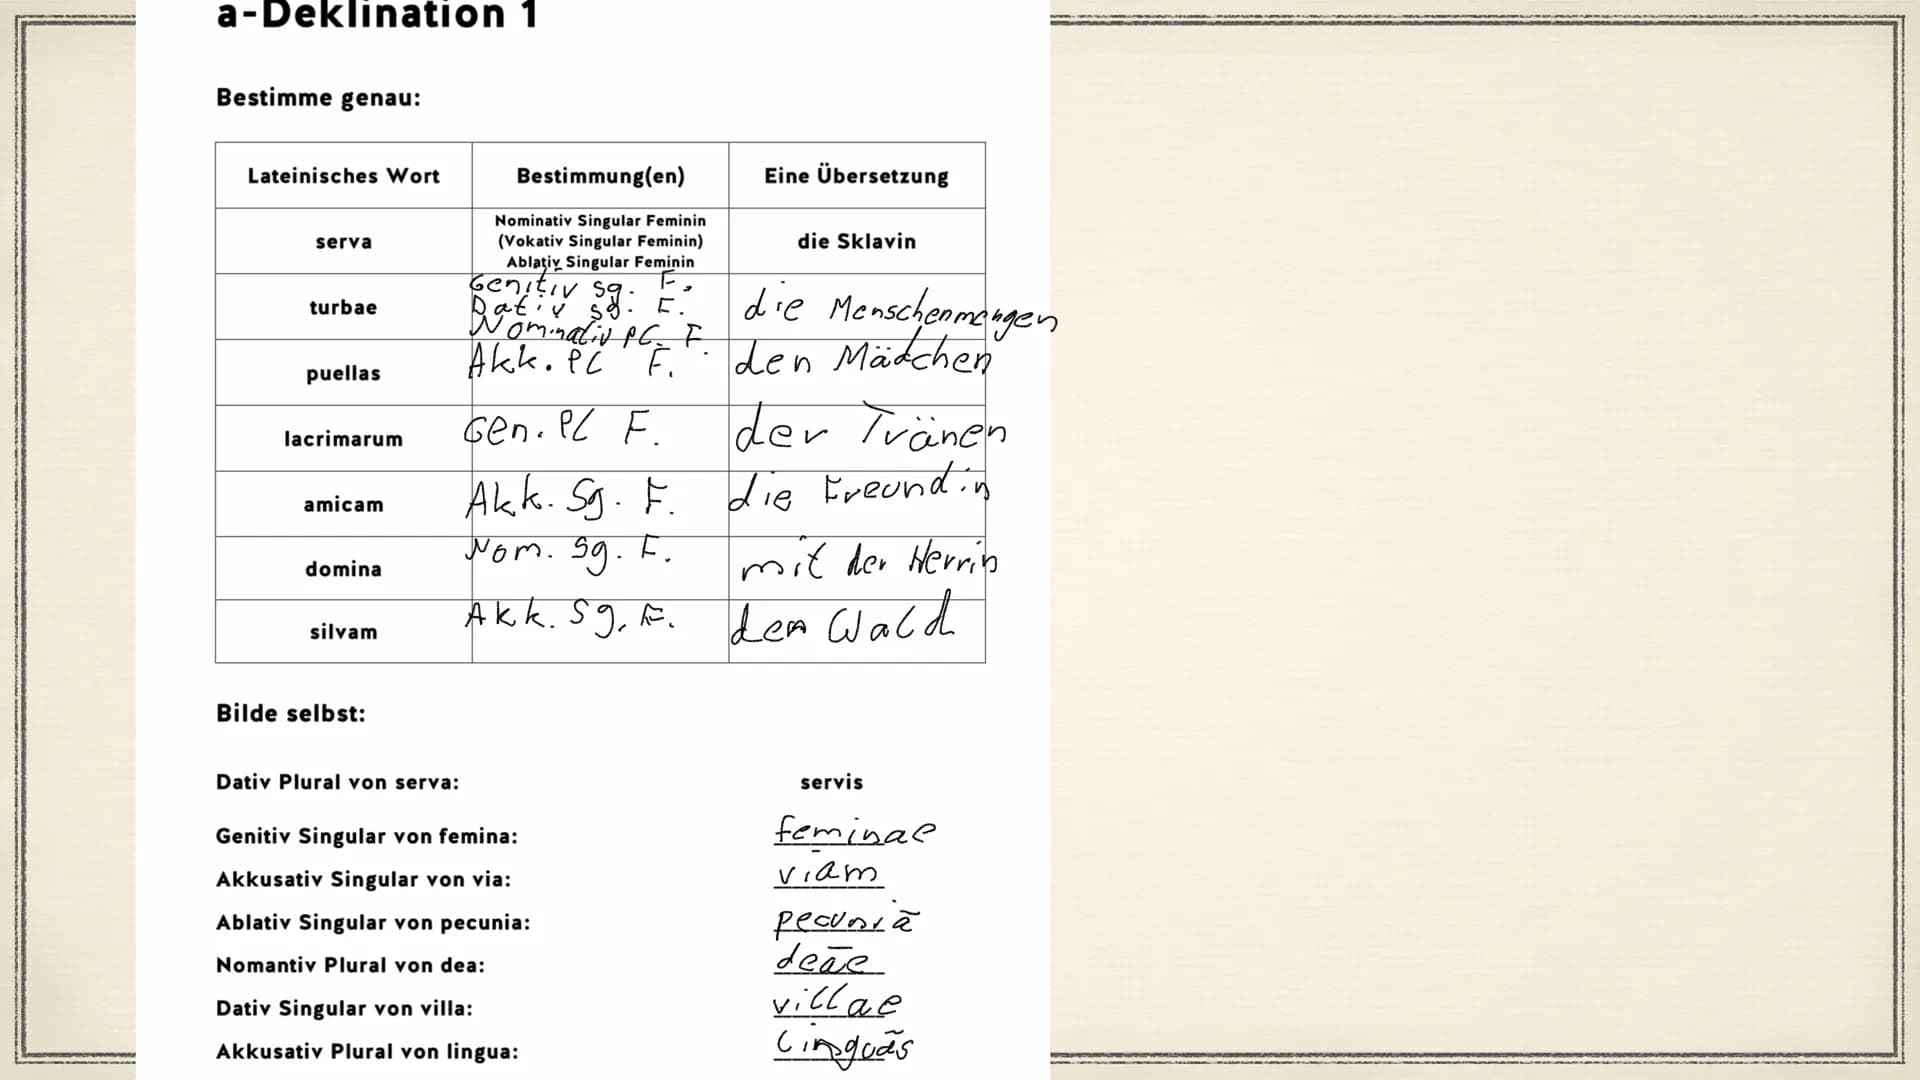 a-Deklination 1
Bestimme genau:
Lateinisches Wort Bestimmung(en) Eine Übersetzung
serva Nominativ Singular Feminin die Sklavin
(Vokativ Singular Feminin)
Ablativ Singular Feminin
turbae Genitiv sg. F. die Menschenmengen
Dativ sg. F.
Nominativ Pl. F.
puellas Akk. Pl F. den Mädchen
lacrimarum Gen. Pl F. der Tränen
amicam Akk. Sg. F. die Freundin
domina Nom. Sg. F. mit der Herrin
silvam Akk. Sg. F. den Wald
Bilde selbst:
Dativ Plural von serva: servis
Genitiv Singular von femina: feminae
Akkusativ Singular von via: viām
Ablativ Singular von pecunia: pecuniā
Nomantiv Plural von dea: deāe
Dativ Singular von villa: villae
Akkusativ Plural von lingua: linguās